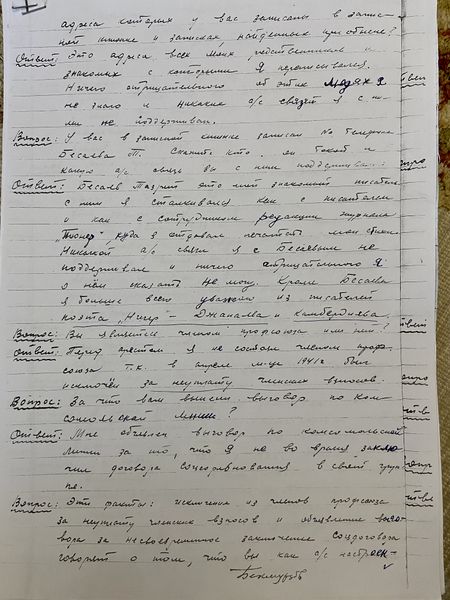 адреса которых у вас записаны в запис-
ной книжке и записках, найденных при обыске?
Ответ: Это адреса всех моих родственников и
знакомых с которыми я переписывался.
Ничего отрицательного об этих людях я
не знаю и никаких а/с связей я с ни-
ми не поддерживал.
Вопрос: У вас в записной книжке записан № телефона
Бесаева Т. Скажите кто он такой и
какую а/с связь вы с ним поддерживали?
Ответ: Бесаев Тазрет это мой знакомый писатель
с ним я сталкивался как с писателем
и как с сотрудником редакции журнала
куда я отдавал печатать мои стихи.
Никакой а/с связи я с Бесаевым не
поддерживал и ничего отрицательного я
о нем сказать не могу. Кроме Бесаева
я больше всего уважаю из писателей
поэта „Нигер" - Джанаева и Камбердиева.
Вопрос: Вы являетесь членом профсоюза или нет?
Ответ: Перед арестом я не состоял членом проф-
союза т.к. в апреле м-це 1941 г был
исключен за неуплату членских взносов.
Вопрос: За что вам вынесен выговор по ком
сомольской линии?
Ответ: Мне объявлен выговор по комсомольской
линии за то, что я не во время заклю
чил договора соцсоревнования в своей груп-
пе.
Вопрос: Эти факты: исключение из членов профсоюза
за неуплату членских взносов и объявление выго-
вора за несвоевременное заключение соцдоговора
говорят о том, что вы как а/с настроен-